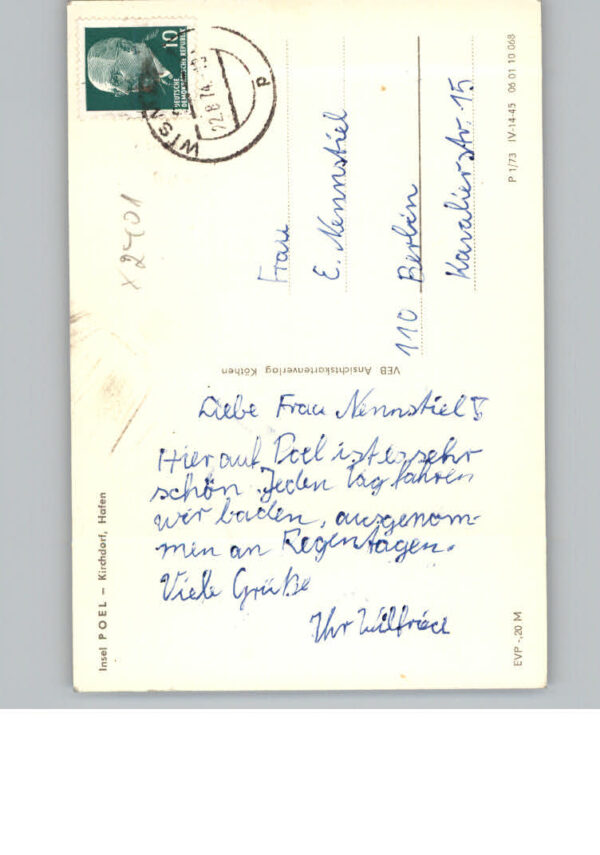 10
DEUTSCHE
DEMOKRATISCHE REPUBLIK
WISMAR
22.8.74
p
x2401
Frau
E. Nennstiel
110 Berlin
Kavalierstr. 15
P 1/73 IV-14-45 06 01 10 068
VEB Ansichtskartenverlag Köthen
Liebe Frau Nennstiel!
Hier auf Poel ist es sehr
schön. Jeden Tag fahren
wir baden, ausgenom-
men an Regentagen.
Viele Grüße
Ihr Wilfried
Insel POEL – Kirchdorf, Hafen
EVP -,20 M